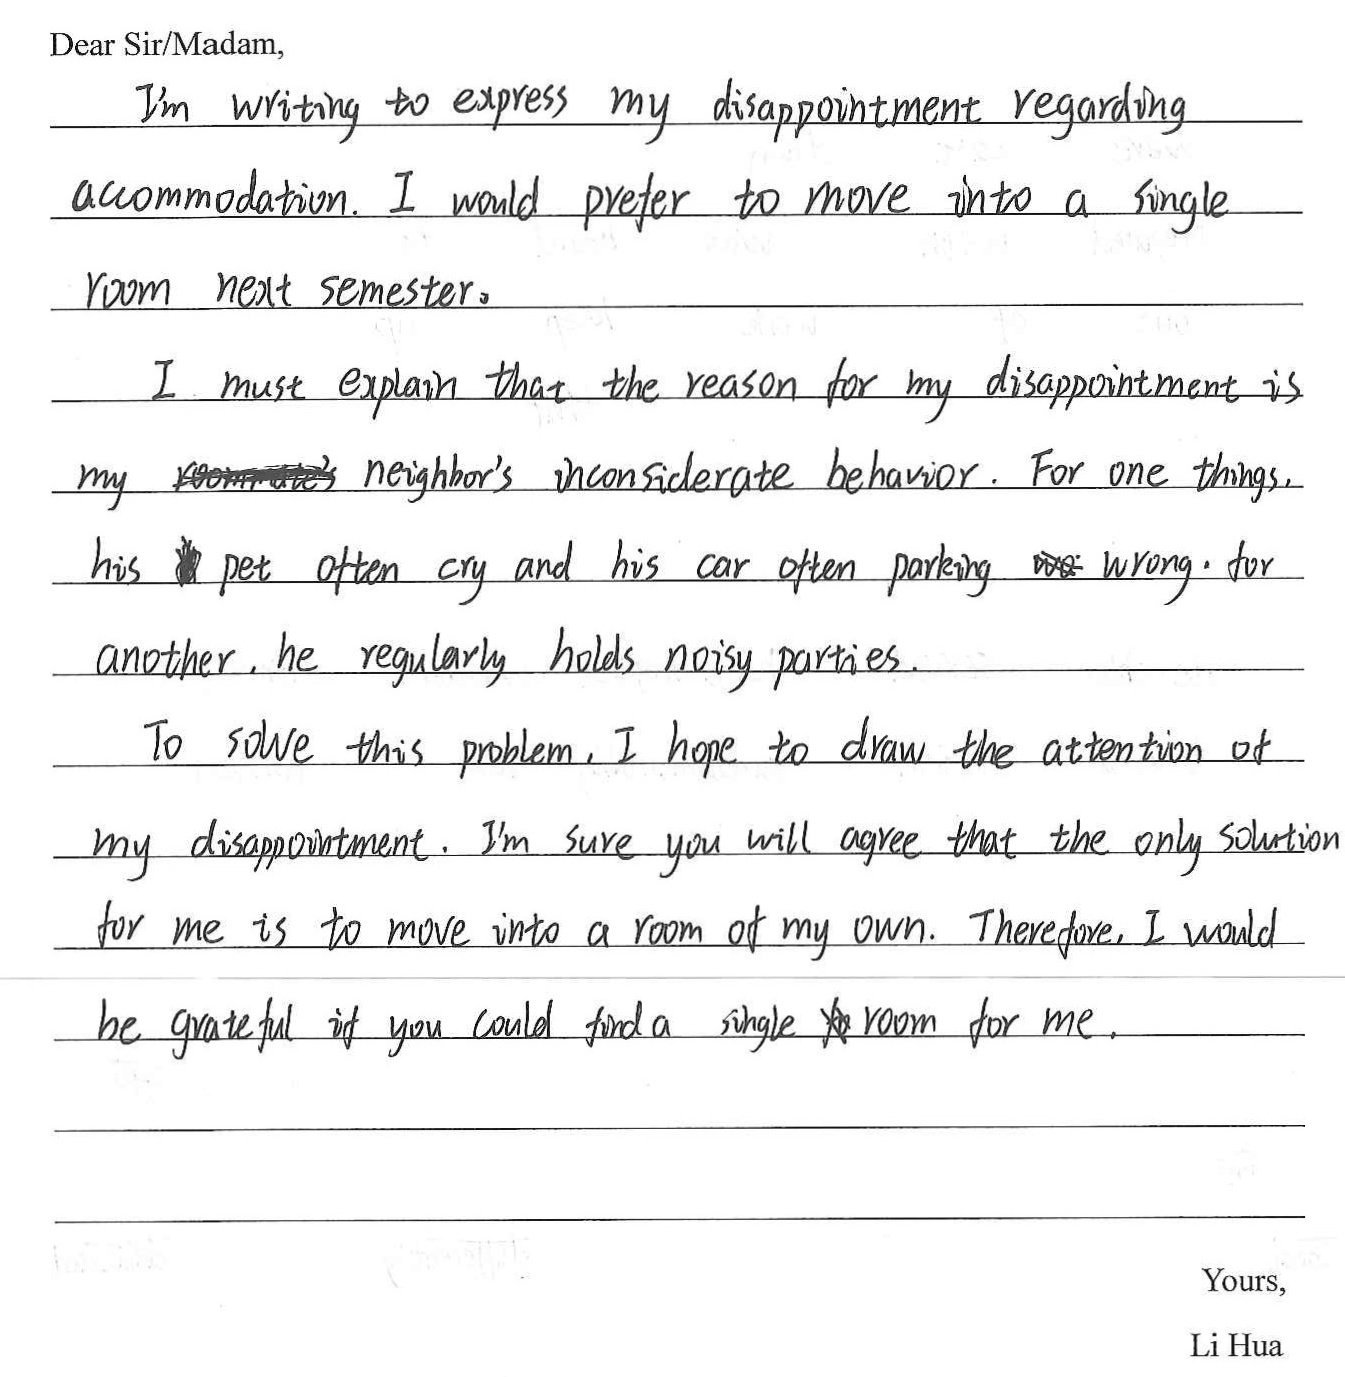 Dear Sir/Madam,
I'm writing to express my disappointment regarding
accommodation. I would prefer to move into a single
room next semester。
I must explain that the reason for my disappointment is
my neighbor's inconsiderate behavior. For one things,
his pet often cry and his car often parking wrong. for
another, he regularly holds noisy parties.
To solve this problem, I hope to draw the attention of
my disappointment. I'm sure you will agree that the only solution
for me is to move into a room of my own. Therefore, I would
be grateful if you could find a single room for me.
Yours,
Li Hua